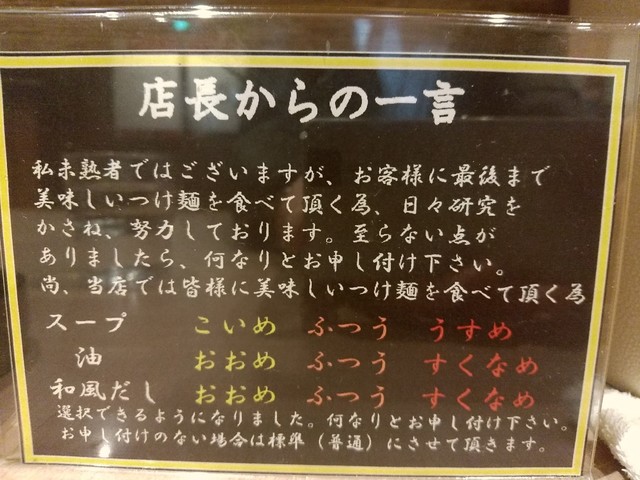 店長からの一言
私未熟者ではございますが、お客様に最後まで
美味しいつけ麺を食べて頂く為、日々研究を
かさね、努力しております。至らない点が
ありましたら、何なりとお申し付け下さい。
尚、当店では皆様に美味しいつけ麺を食べて頂く為
スープ こいめ ふつう うすめ
油 おおめ ふつう すくなめ
和風だし おおめ ふつう すくなめ
選択できるようになりました。何なりとお申し付け下さい。
お申し付けのない場合は標準（普通）にさせて頂きます。